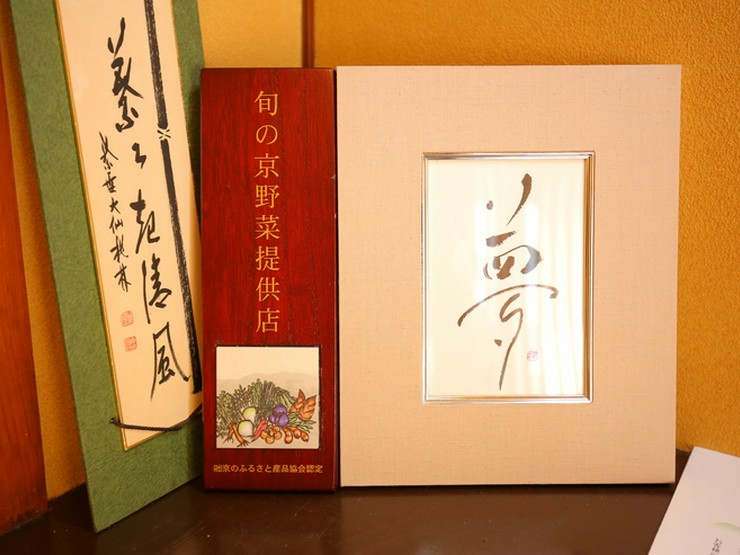 葉々起清風
紫野大仙桃林
旬の京野菜提供店
(社)京のふるさと産品協会認定
夢